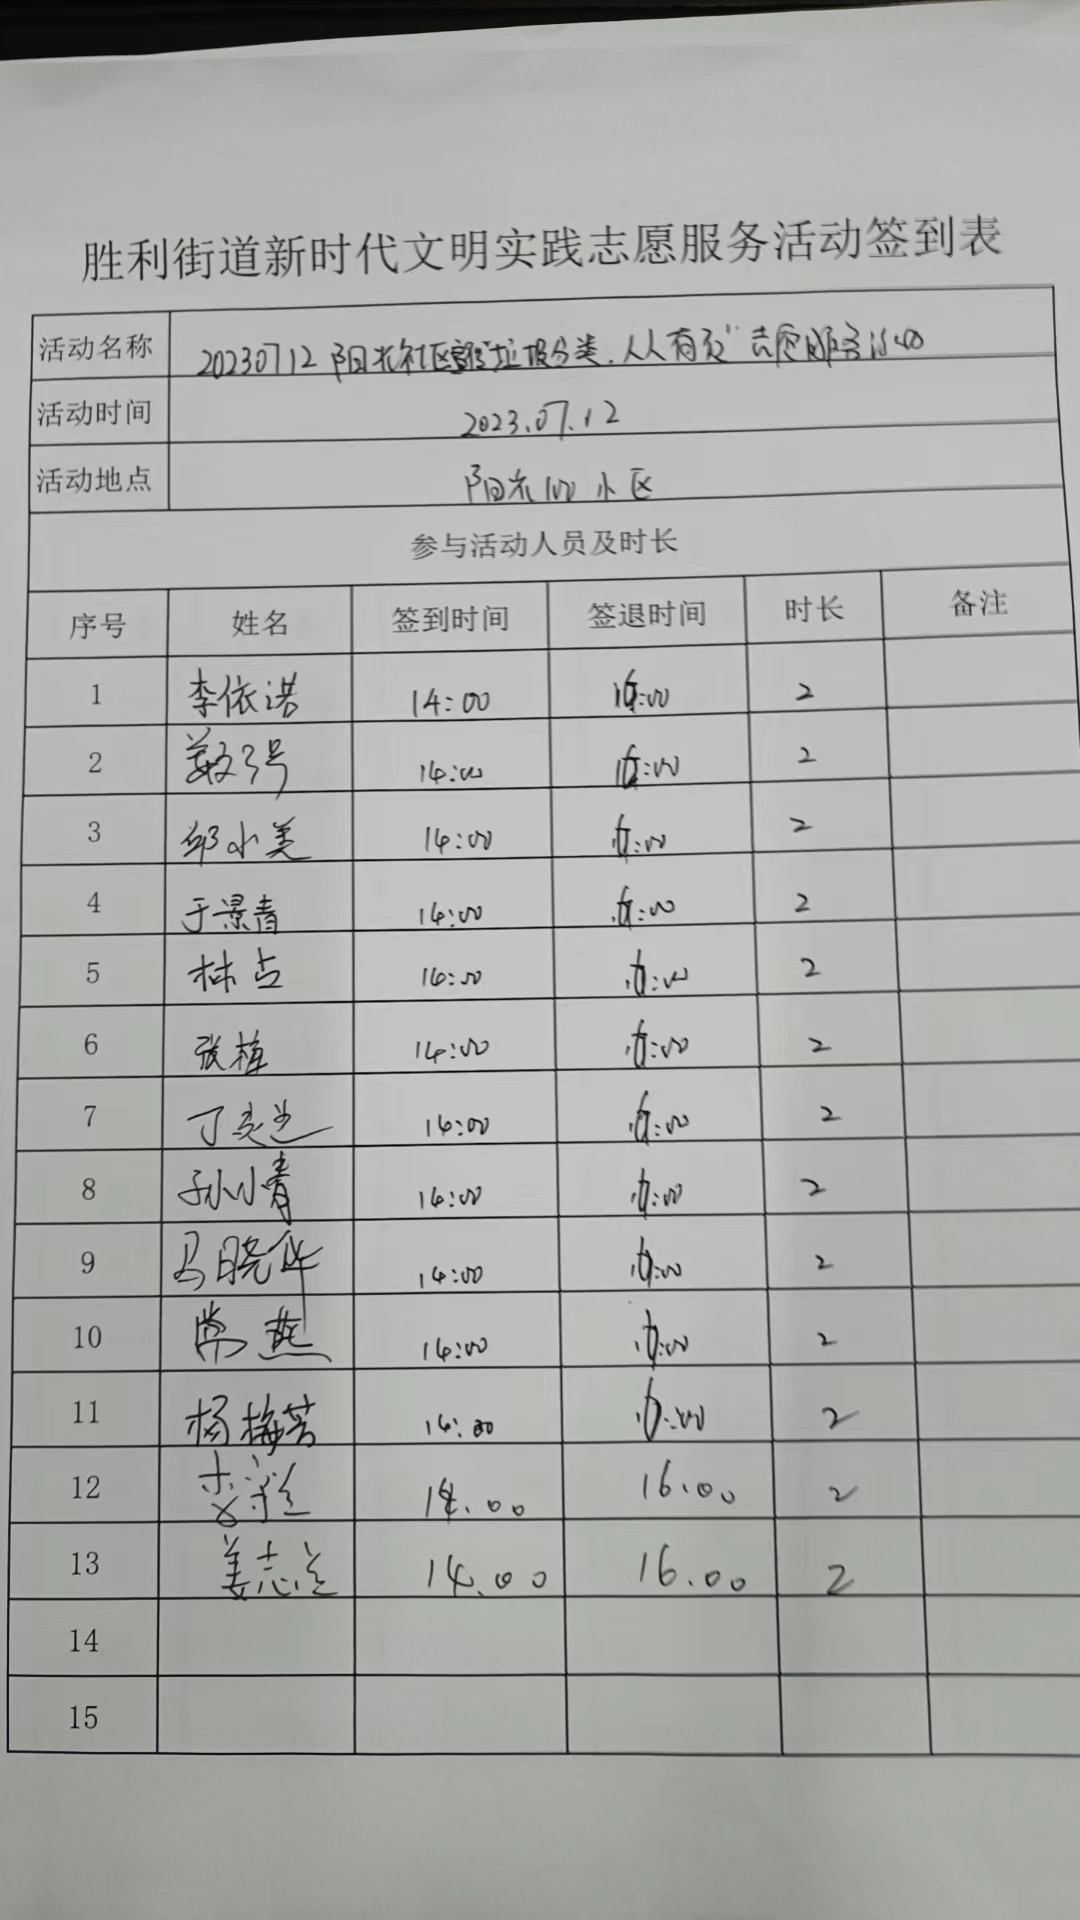 胜利街道新时代文明实践志愿服务活动签到表
活动名称 20230712阳光社区"垃圾分类.人人有责"志愿服务活动
活动时间 2023.07.12
活动地点 阳光100小区
参与活动人员及时长
序号 姓名 签到时间 签退时间 时长 备注
1 李依诺 14:00 16:00 2
2 14:00 16:00 2
3 邱小美 14:00 16:00 2
4 于景青 14:00 16:00 2
5 林占 14:00 16:00 2
6 张梅 14:00 16:00 2
7 丁 14:00 16:00 2
8 孙小青 14:00 16:00 2
9 马晓华 14:00 16:00 2
10 常燕 14:00 16:00 2
11 杨梅芳 14:00 16:00 2
12 14.00 16.00 2
13 姜志 14.00 16.00 2
14
15